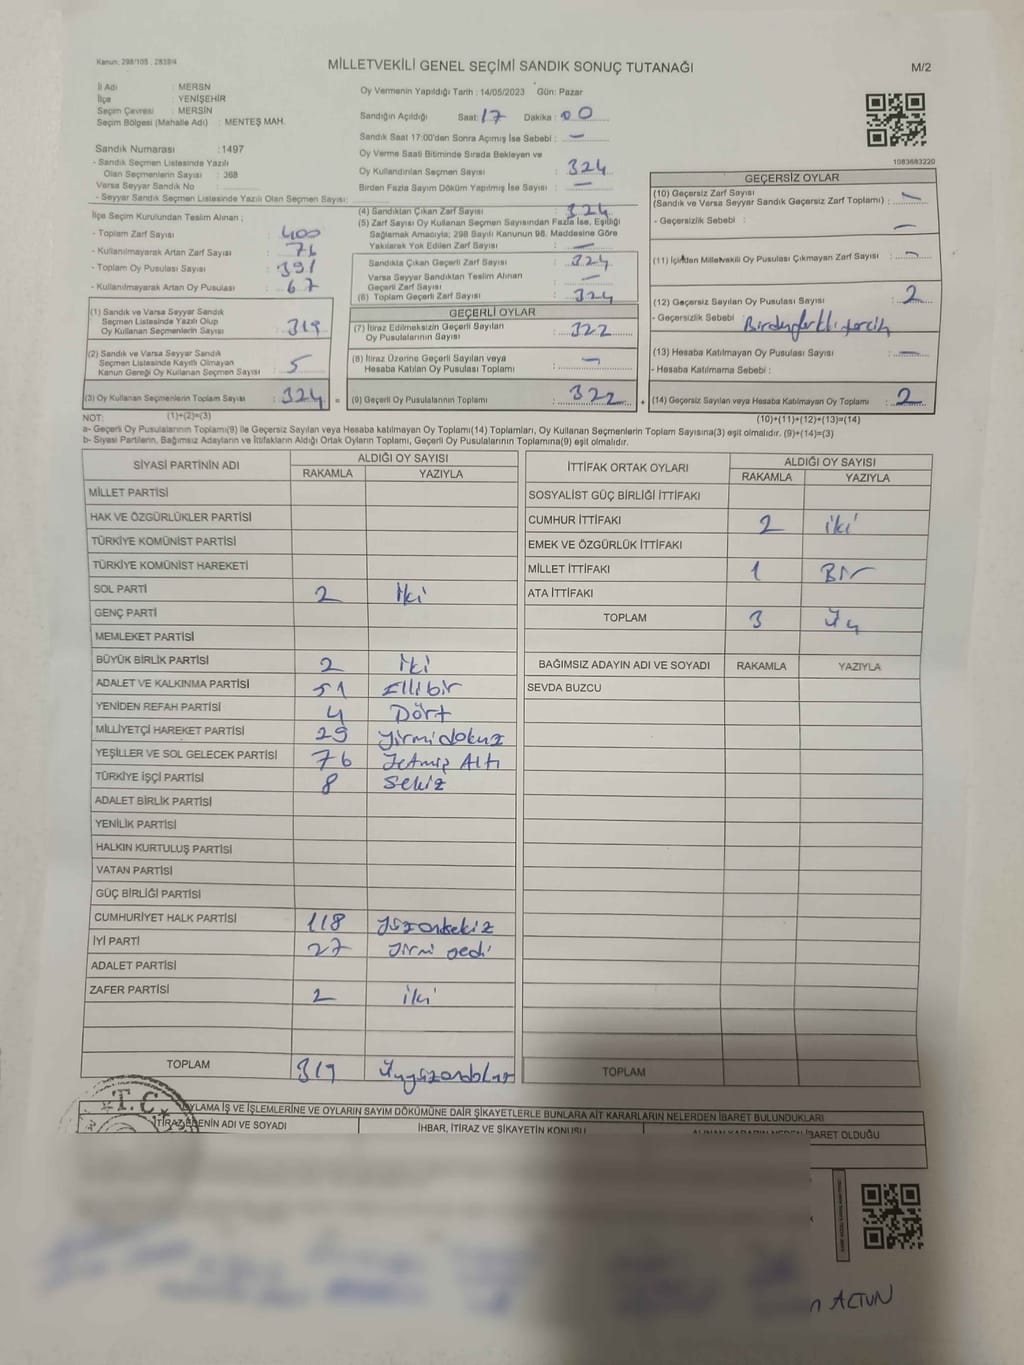 Kanun: 298/105, 2839/4
MİLLETVEKİLİ GENEL SEÇİMİ SANDIK SONUÇ TUTANAĞI
M/2
İl Adı : MERSN
İlçe : YENİŞEHİR
Seçim Çevresi : MERSİN
Seçim Bölgesi (Mahalle Adı) : MENTEŞ MAH.
Sandık Numarası :1497
- Sandık Seçmen Listesinde Yazılı
Olan Seçmenlerin Sayısı : 368
Varsa Seyyar Sandık No :
- Seyyar Sandık Seçmen Listesinde Yazılı Olan Seçmen Sayısı:
İlçe Seçim Kurulundan Teslim Alınan ;
- Toplam Zarf Sayısı : 400
- Kullanılmayarak Artan Zarf Sayısı : 76
- Toplam Oy Pusulası Sayısı : 391
- Kullanılmayarak Artan Oy Pusulası : 67
(1) Sandık ve Varsa Seyyar Sandık
Seçmen Listesinde Yazılı Olup
Oy Kullanan Seçmenlerin Sayısı : 319
(2) Sandık ve Varsa Seyyar Sandık
Seçmen Listesinde Kayıtlı Olmayan
Kanun Gereği Oy Kullanan Seçmen Sayısı : 5
(3) Oy Kullanan Seçmenlerin Toplam Sayısı : 324 =
Oy Vermenin Yapıldığı Tarih : 14/05/2023 Gün: Pazar
Sandığın Açıldığı Saat: 17 Dakika : 00
Sandık Saat 17:00'den Sonra Açımış İse Sebebi : -
Oy Verme Saati Bitiminde Sırada Bekleyen ve
Oy Kullandırılan Seçmen Sayısı : 324
Birden Fazla Sayım Döküm Yapılmış İse Sayısı : -
(4) Sandıktan Çıkan Zarf Sayısı : 324
(5) Zarf Sayısı Oy Kullanan Seçmen Sayısından Fazla İse, Eşitliği
Sağlamak Amacıyla; 298 Sayılı Kanunun 98. Maddesine Göre
Yakılarak Yok Edilen Zarf Sayısı : -
Sandıkta Çıkan Geçerli Zarf Sayısı : 324
Varsa Seyyar Sandıktan Teslim Alınan
Geçerli Zarf Sayısı : -
(6) Toplam Geçerli Zarf Sayısı : 324
GEÇERLİ OYLAR
(7) İtiraz Edilmeksizin Geçerli Sayılan
Oy Pusulalarının Sayısı : 322
(8) İtiraz Üzerine Geçerli Sayılan veya
Hesaba Katılan Oy Pusulası Toplamı : -
(9) Geçerli Oy Pusulalarının Toplamı : 322 +
1083683220
GEÇERSİZ OYLAR
(10) Geçersiz Zarf Sayısı
(Sandık ve Varsa Seyyar Sandık Geçersiz Zarf Toplamı) : -
- Geçersizlik Sebebi : -
(11) İçinden Milletvekili Oy Pusulası Çıkmayan Zarf Sayısı : -
(12) Geçersiz Sayılan Oy Pusulası Sayısı : 2
- Geçersizlik Sebebi
(13) Hesaba Katılmayan Oy Pusulası Sayısı : -
- Hesaba Katılmama Sebebi :
(14) Geçersiz Sayılan veya Hesaba Katılmayan Oy Toplamı : 2
NOT: (1)+(2)=(3) (10)+(11)+(12)+(13)=(14)
a- Geçerli Oy Pusulalarının Toplamı(9) ile Geçersiz Sayılan veya Hesaba Katılmayan Oy Toplamı(14) Toplamları, Oy Kullanan Seçmenlerin Toplam Sayısına(3) eşit olmalıdır. (9)+(14)=(3)
b- Siyasi Partilerin, Bağımsız Adayların ve İttifakların Aldığı Ortak Oyların Toplamı, Geçerli Oy Pusulalarının Toplamına(9) eşit olmalıdır.
SİYASİ PARTİNİN ADI ALDIĞI OY SAYISI
RAKAMLA YAZIYLA
MİLLET PARTİSİ
HAK VE ÖZGÜRLÜKLER PARTİSİ
TÜRKİYE KOMÜNİST PARTİSİ
TÜRKİYE KOMÜNİST HAREKETİ
SOL PARTİ 2 İki
GENÇ PARTİ
MEMLEKET PARTİSİ
BÜYÜK BİRLİK PARTİSİ 2 İki
ADALET VE KALKINMA PARTİSİ 51 Ellibir
YENİDEN REFAH PARTİSİ 4 Dört
MİLLİYETÇİ HAREKET PARTİSİ 29 yirmidokuz
YEŞİLLER VE SOL GELECEK PARTİSİ 76 Yetmiş Altı
TÜRKİYE İŞÇİ PARTİSİ 8 Sekiz
ADALET BİRLİK PARTİSİ
YENİLİK PARTİSİ
HALKIN KURTULUŞ PARTİSİ
VATAN PARTİSİ
GÜÇ BİRLİĞİ PARTİSİ
CUMHURİYET HALK PARTİSİ 118 yüzonsekiz
İYİ PARTİ 27 yirmi yedi
ADALET PARTİSİ
ZAFER PARTİSİ 2 iki
TOPLAM 319 Üçyüzondokuz
İTTİFAK ORTAK OYLARI ALDIĞI OY SAYISI
RAKAMLA YAZIYLA
SOSYALİST GÜÇ BİRLİĞİ İTTİFAKI
CUMHUR İTTİFAKI 2 iki
EMEK VE ÖZGÜRLÜK İTTİFAKI
MİLLET İTTİFAKI 1 Bir
ATA İTTİFAKI
TOPLAM 3 Üç
BAĞIMSIZ ADAYIN ADI VE SOYADI RAKAMLA YAZIYLA
SEVDA BUZCU
TOPLAM
T.C.
OYLAMA İŞ VE İŞLEMLERİNE VE OYLARIN SAYIM DÖKÜMÜNE DAİR ŞİKAYETLERLE BUNLARA AİT KARARLARIN NELERDEN İBARET BULUNDUKLARI
İTİRAZ EDENİN ADI VE SOYADI İHBAR, İTİRAZ VE ŞİKAYETİN KONUSU İBARET OLDUĞU
ALTUN